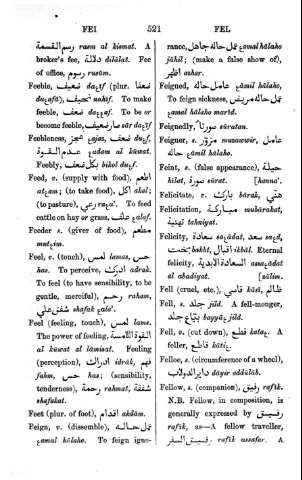 FEI
521
FEL
رسم القسمة rasm al kismat. A
broker's fee دلالة dilálat. Fee
of office, رسوم rusúm.
Feeble, ضعيف ضعفا (plur.
نحيف nahíf. To make
feeble, ضعف To be or
become feeble,
Feebleness, عجز
عدم القوة
Feebly, بكل ضعف bikol
Feed, v. (supply with food), اطعم
(to take food), اكل akal;
(to pasture), رعى To feed
cattle on hay or grass, علف
Feeder s. (giver of food), مطعم
Feel, v. (touch), لمس lamas,
has. To perceive, ادرك adrak.
To feel (to have sensibility, to be
gentle, merciful), رحم raham,
شفق على
Feel (feeling, touch), لمس lams.
The power of feeling, القوة اللامسة
al kúwat al lámisat. Feeling
(perception), ادراك idrák,
fahm, حس has; (sensibility,
tenderness), رحمة rahmat, شفقة
shafakat.
Feet (plur. of foot), اقدام akdám.
Feign, v. (dissemble),
To feign igno-
rance, عمل حاله جاهل
jáhil; (make a false show of),
اظهر azhar.
Feigned, عامل حاله
To feign sickness, عمل حاله مريض
Feignedly, صورة súratan.
Feigner, s. مزور muzawwir, عامل
حاله
Feint, s. (false appearance),
hílat, صورة súrat.
Felicitate, v. بارك bárak, هنى
Felicitation, مباركة mubárakat,
تهنية tahniyat.
Felicity, سعادة
bakht, اقبال ikbál. Eternal
felicity, السعادة الابدية
al abadíyat.
Fell (cruel, etc.), قاسي kásí, ظالم
Fell, s. جلد jild. A fell-monger,
بياع جلد
Fell, v. (cut down), قطع A
feller, قاطع
Felloe, s. (circumference of a wheel),
داير الدولاب dáyir addúláb.
Fellow, s. (companion), رفيق rafík.
N.B. Fellow, in composition, is
generally expressed by رفيق
rafík, as A fellow traveller,
رفيق السفر rafík assafar. A